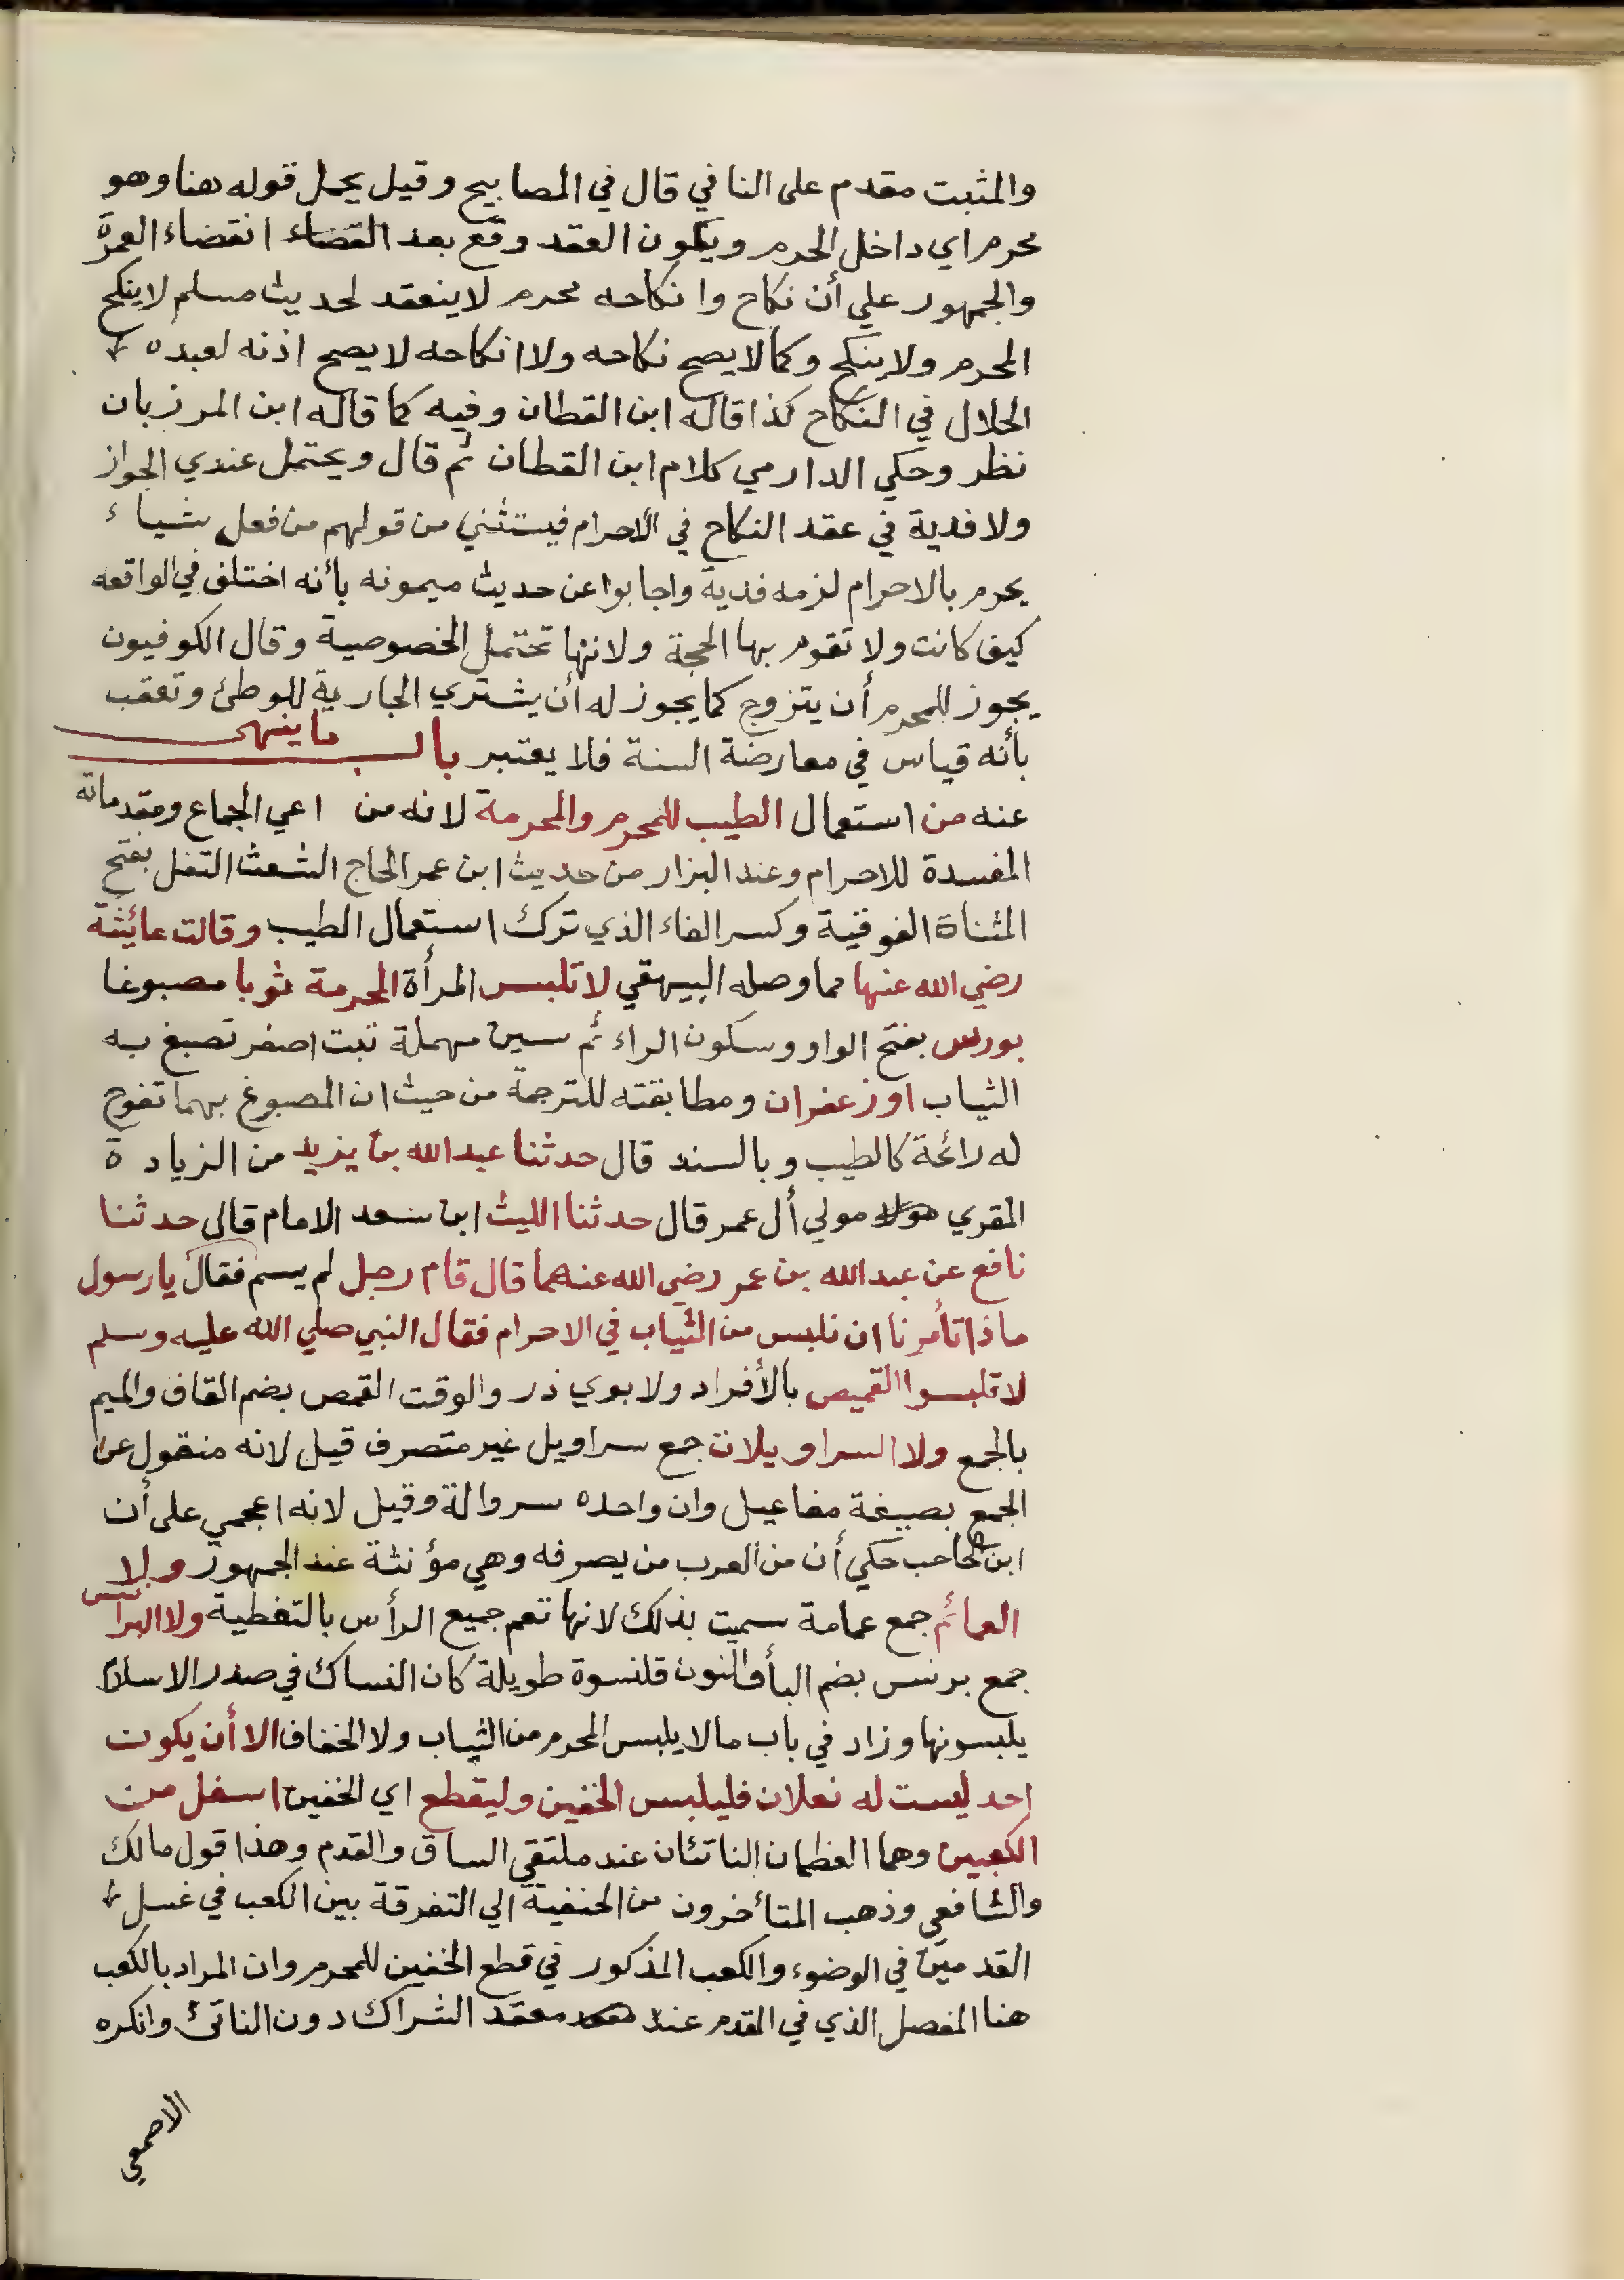 والمثبت مقدم على النافي قال في المصابيح وقيل يحمل قوله هنا وهو
محرم اي داخل الحرم ويكون العقد وقع بعد القضاء انقضاء العمرة
والجمهور علي أن نكاح وانكاحه محرم لا ينعقد لحديث مسلم لا ينكح
المحرم ولا ينكح وكما لا يصح نكاحه ولا انكاحه لا يصح اذنه لعبده
الحلال في النكاح كذا قاله ابن القطان وفيه كما قاله ابن المرزبان
نظر وحكي الدارمي كلام ابن القطان ثم قال ويحتمل عندي الجواز
ولا فدية في عقد النكاح في الاحرام فيستثني من قولهم من فعل شياء
يحرم بالاحرام لزمه فدية واجابوا عن حديث ميمونه بأنه اختلف في الواقعه
كيف كانت ولا تقوم بها الحجة ولانها تحتمل الخصوصية وقال الكوفيون
يجوز للمحرم أن يتزوج كما يجوز له أن يشتري الجارية للوطئ وتعقب
بأنه قياس في معارضة السنة فلا يعتبر باب ما ينهى
عنه من استعمال الطيب للمحرم والمحرمة لانه من اعي الجماع ومقدماته
المفسدة للاحرام وعند البزار من حديث ابن عمر الحاج الشعث التفل بفتح
المثناة الفوقية وكسر الفاء الذي ترك استعمال الطيب وقالت عائشة
رضي الله عنها مما وصله البيهقي لا تلبس المرأة المحرمة ثوبا مصبوغا
بورس بفتح الواو وسكون الراء ثم سين مهملة نبت اصفر تصبغ به
الثياب او زعفران ومطابقته للترجمة من حيث ان المصبوغ بهما تفوح
له رائحة كالطيب وبالسند قال حدثنا عبد الله بن يزيد من الزيادة
المقري مولي أل عمر قال حدثنا الليث ابن سعد الامام قال حدثنا
نافع عن عبد الله بن عمر رضي الله عنهما قال قام رجل لم يسم فقال يا رسول
ماذا تأمرنا ان نلبس من الثياب في الاحرام فقال النبي صلي الله عليه وسلم
لا تلبسوا القميص بالأفراد ولابوي ذر والوقت القمص بضم القاف والميم
بالجمع ولا السراويلات جمع سراويل غير متصرف قيل لانه منقول عن
الجمع بصيغة مفاعيل وان واحده سروالة وقيل لانه اعجمي على أن
ابن الحاجب حكي أن من العرب من يصرفه وهي مؤنثة عند الجمهور ولا
العمائم جمع عمامة سميت بذلك لانها تعم جميع الرأس بالتغطية ولا البرانس
جمع برنس بضم البأ والنون قلنسوة طويلة كان النساك في صدر الاسلام
يلبسونها وزاد في باب ما لا يلبس المحرم من الثياب ولا الخفاف الا أن يكون
احد ليست له نعلان فليلبس الخفين وليقطع اي الخفين اسفل من
الكعبين وهما العظمان الناتئان عند ملتقي الساق والقدم وهذا قول مالك
والشافعي وذهب المتأخرون من الحنفية الي التفرقة بين الكعب في غسل
القدمين في الوضوء والكعب المذكور في قطع الخفين للمحرم وان المراد بالكعب
هنا المفصل الذي في القدم عند معقد الشراك دون الناتئ وانكره
الاصمعي